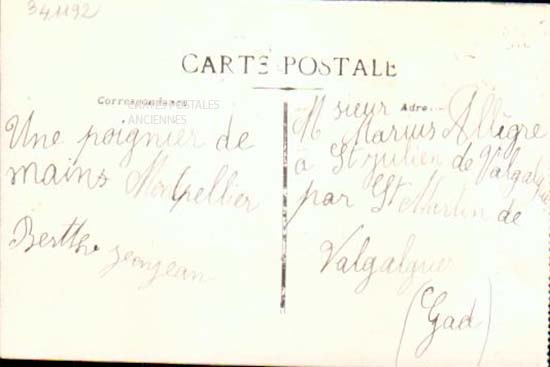 341192
CARTE POSTALE
Correspondance
CARTES POSTALES
ANCIENNES
Une poignier de
mains Montpellier
Berthe Jeanjean
Adre
Msieur
Marius Allègre
à St julien de Valgalgue
par St Martin de
Valgalgues
(Gad)